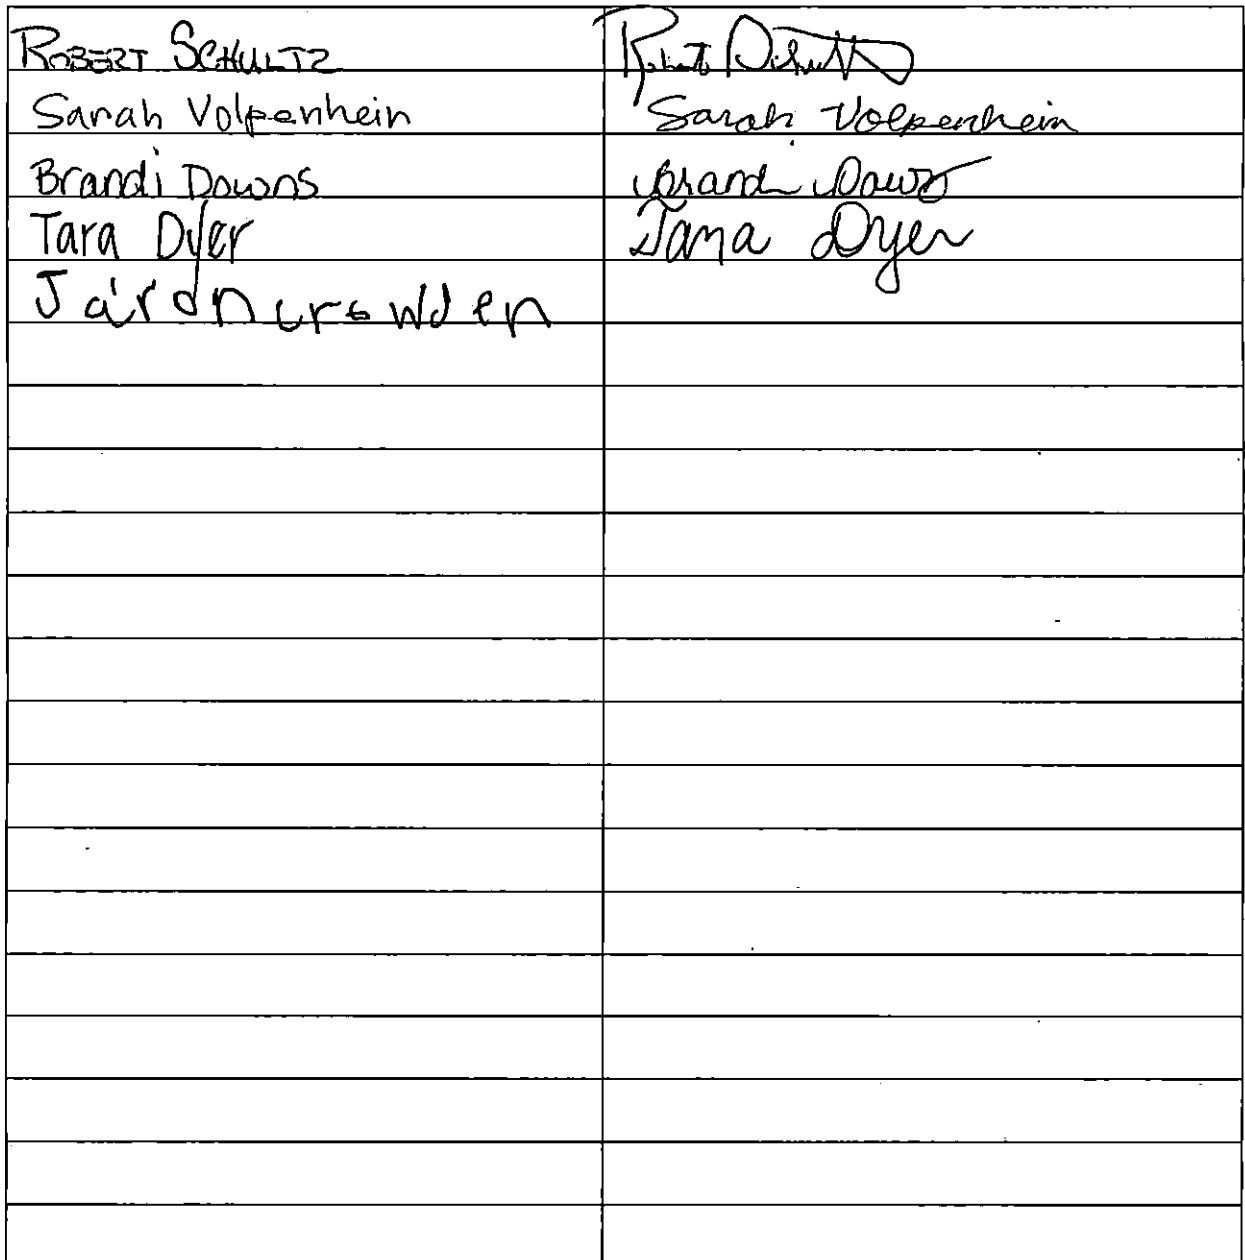 ROBERT SCHULTZ Robert Schultz
Sarah Volpenhein Sarah Volpenhein
Brandi Downs Brandi Downs
Tara Dyer Tara Dyer